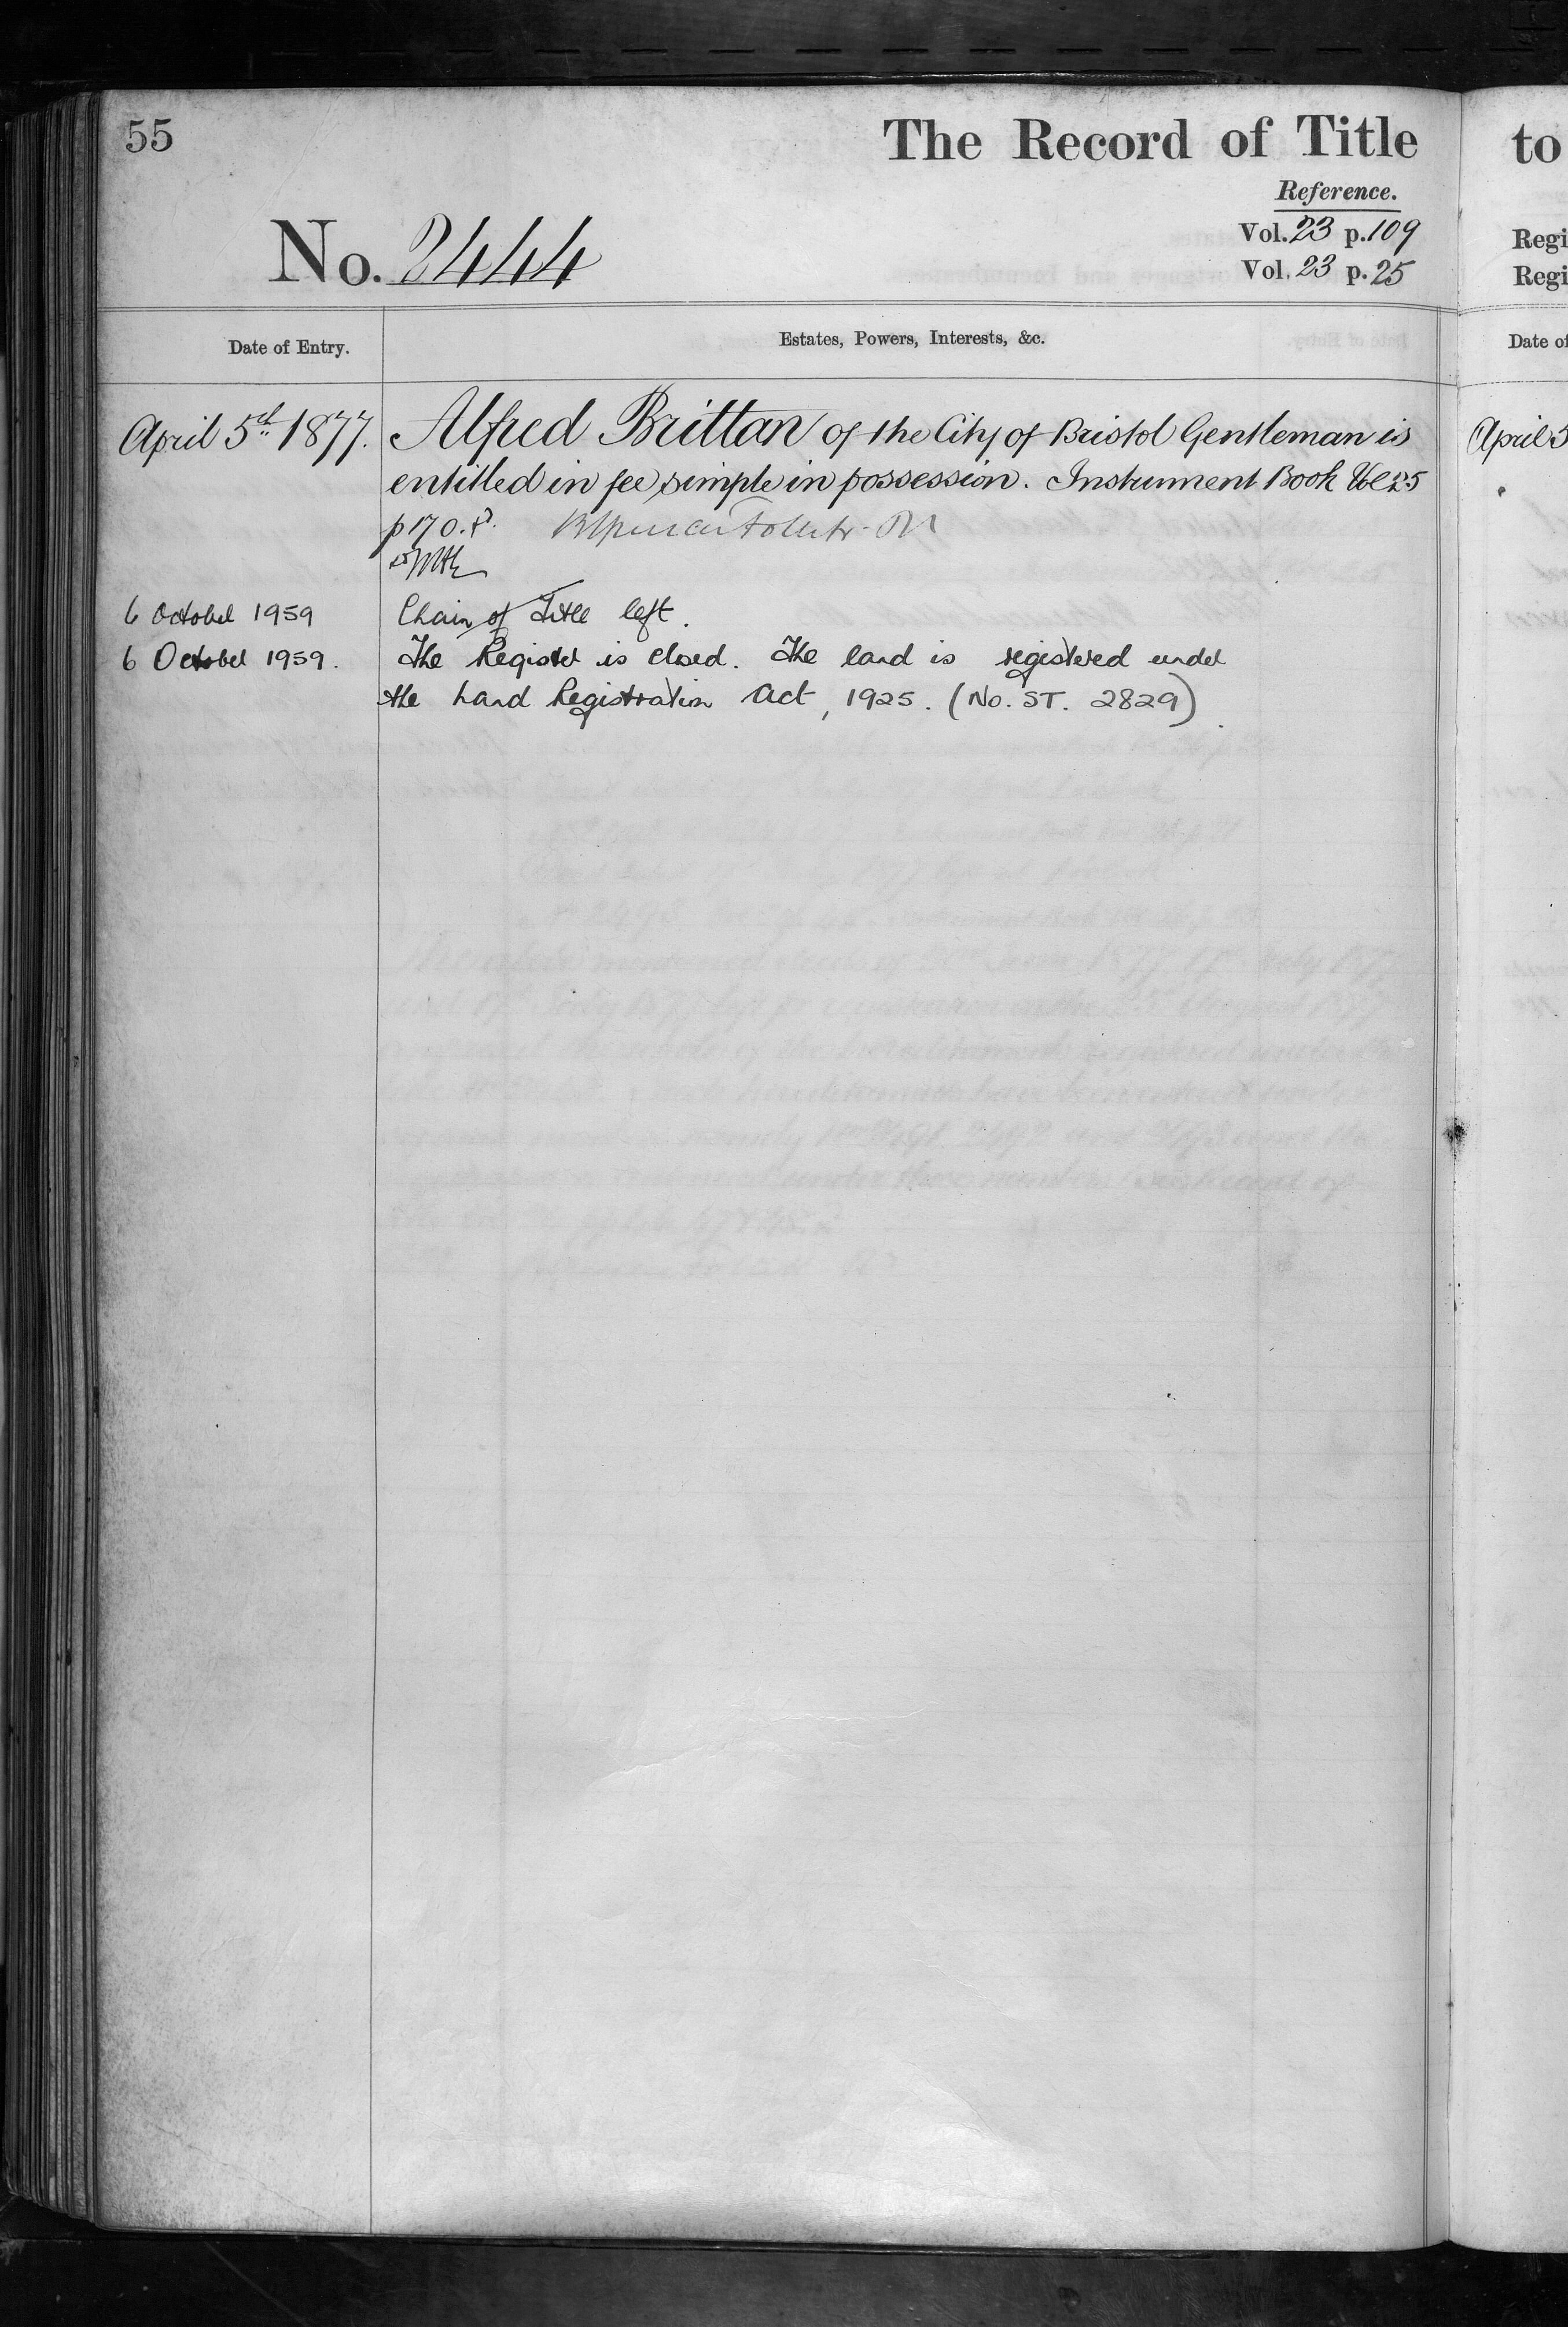 55
The Record of Title
to
Reference.
No. 2444
Vol. 23 p. 109
Vol. 23 p. 25
Regi
Regi
Date of Entry.
Estates, Powers, Interests, &c.
Date of
April 5th 1877.
Alfred Brittan of the City of Bristol Gentleman is
entitled in fee simple in possession. Instrument Book Vol 25
p 170.
April 5
6 October 1959
Chain of Title left.
6 October 1959.
The Register is closed. The land is registered under
the Land Registration Act, 1925. (No. ST. 2829).